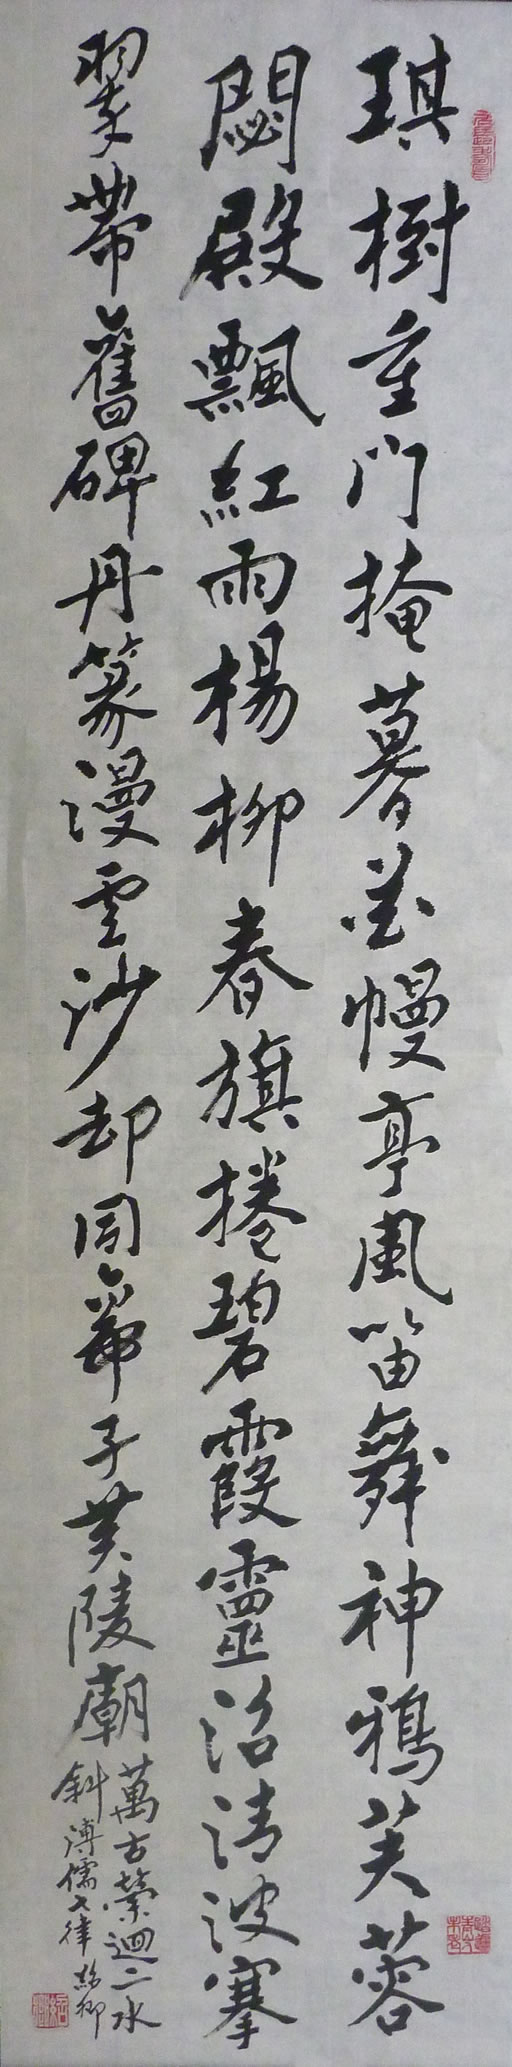 琪樹重門掩暮花幔亭風笛舞神鴉芙蓉
閟殿飄紅雨楊柳春旗捲碧霞靈沼清波搴
翠帶舊碑丹篆漫雲沙却同帝子黃陵廟
萬古縈迴二水
斜溥儒七律